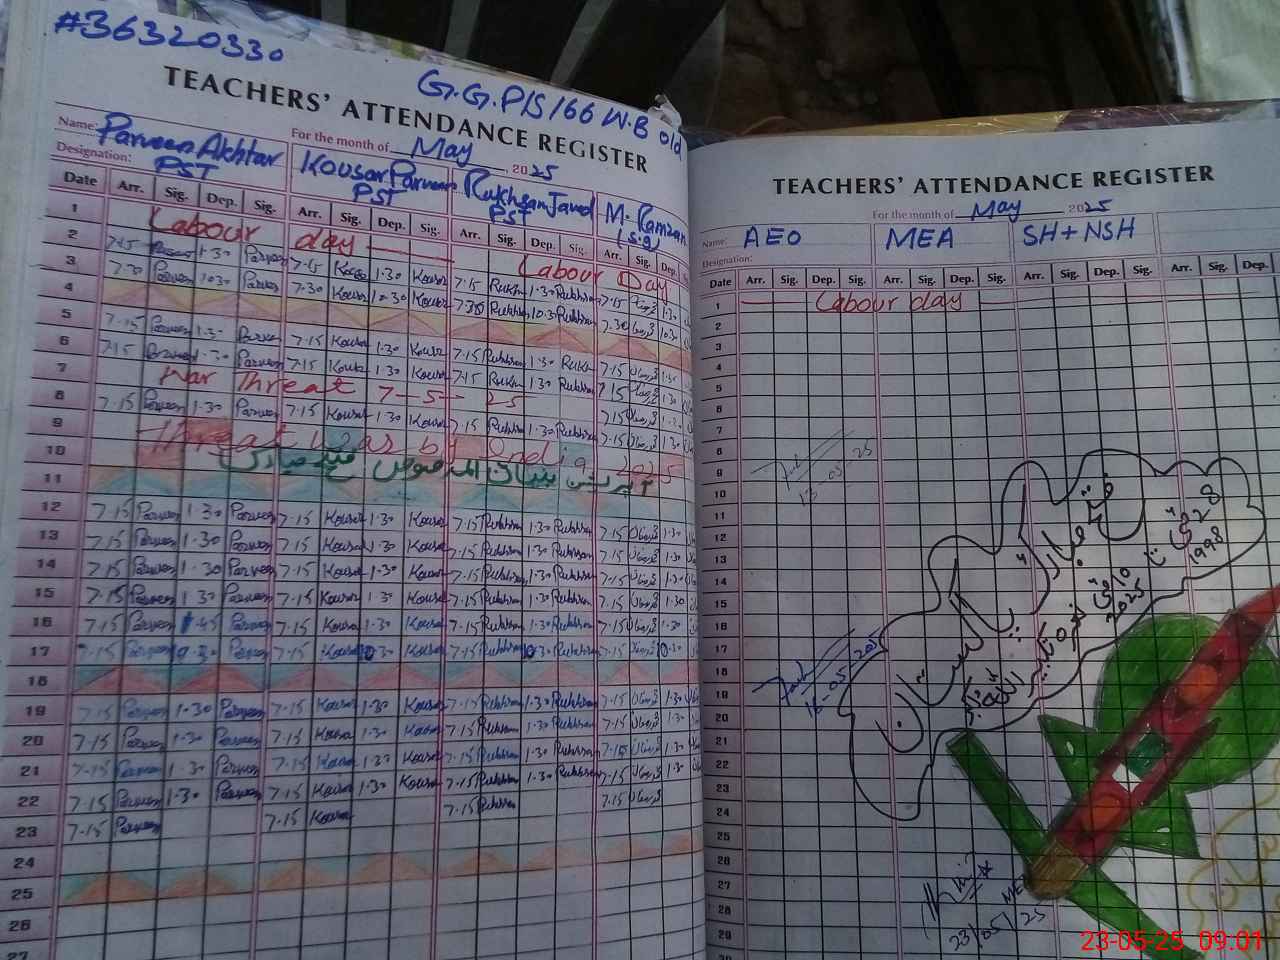 #36320330
G.G.P/S/166 W.B old
TEACHERS' ATTENDANCE REGISTER
For the month of May 2025
Name: Parveen Akhtar Kousar Parveen Rukhsan Javed M. Ramzan
Designation: PST PST PST (S.G)
Date Arr. Sig. Dep. Sig. Arr. Sig. Dep. Sig. Arr. Sig. Dep. Sig. Arr. Sig. Dep.
1 Labour day Labour Day
2 7-15 1-30 Parveen 7-15 Kousar 1-30 Kousar 7-15 Rukh 1-30 Rukhsan 7-15 1-30
3 7-30 Parveen 10-30 Parveen 7-30 Kousar 10-30 Kousar 7-30 Rukhsan 10-30 Rukhsan 7-30 10-30
4
5 7-15 Parveen 1-30 7-15 Kousar 1-30 Kousar 7-15 Rukhsan 1-30 Rukh 7-15 1-30
6 7-15 1-30 Parveen 7-15 Kousar 1-30 Kousar 7-15 Rukh 1-30 Rukhsan 7-15 1-30
7 War Threat 7-5-25 7-15
8 7-15 Parveen 1-30 Parveen 7-15 Kousar 1-30 Kousar 7-15 Rukhsan 1-30 Rukhsan 7-15 1-30
9 Threat was by India 2025
10 آپریشن بنیان المرصوص فتح مبارک
11
12 7-15 Parveen 1-30 Parveen 7-15 Kousar 1-30 Kousar 7-15 Rukhsan 1-30 Rukhsan 7-15 1-30
13 7-15 Parveen 1-30 Parveen 7-15 Kousar 1-30 Kousar 7-15 Rukhsan 1-30 Rukhsan 7-15 1-30
14 7-15 Parveen 1-30 Parveen 7-15 Kousar 1-30 Kousar 7-15 Rukhsan 1-30 Rukhsan 7-15 1-30
15 7-15 Parveen 1-30 Parveen 7-15 Kousar 1-30 Kousar 7-15 Rukhsan 1-30 Rukhsan 7-15 1-30
16 7-15 Parveen Parveen 7-15 Kousar 1-30 Kousar 7-15 Rukhsan 1-30 Rukhsan 7-15 1-30
17 7-15 Parveen 10-30 Parveen 7-15 Kousar 10-30 Kousar 7-15 Rukhsan 10-30 Rukhsan 7-15 10-30
18
19 7-15 Parveen 1-30 Parveen 7-15 Kousar 1-30 Kousar 7-15 Rukhsan 1-30 Rukhsan 7-15 1-30
20 7-15 Parveen 1-30 Parveen 7-15 Kousar 1-30 Kousar 7-15 Rukhsan 1-30 Rukhsan 7-15 1-30
21 7-15 Parveen 1-30 Parveen 7-15 Kousar 1-30 Kousar 7-15 Rukhsan 1-30 Rukhsan 7-15 1-30
22 7-15 Parveen 1-30 Parveen 7-15 Kousar 1-30 Kousar 7-15 Rukhsan 1-30 Rukhsan 7-15 1-30
23 7-15 Parveen 7-15 Kousar 7-15 Rukhsan 7-15
24
25
26
27
TEACHERS' ATTENDANCE REGISTER
For the month of May 2025
Name: AEO MEA SH+NSH
Designation:
Date Arr. Sig. Dep. Sig. Arr. Sig. Dep. Sig. Arr. Sig. Dep. Sig. Arr. Sig. Dep.
1 Labour day
2
3
4
5
6
7
8
9
10
11
12
13
14
15
16
17
18
19
20
21
22
23
24
25
26
27
28
29
13-05-25
16-05-2025
فتح مبارک
پاکستان
28 مئی
1998
تا 10 مئی
2025
MEA
23/05/25
23-05-25 09.01